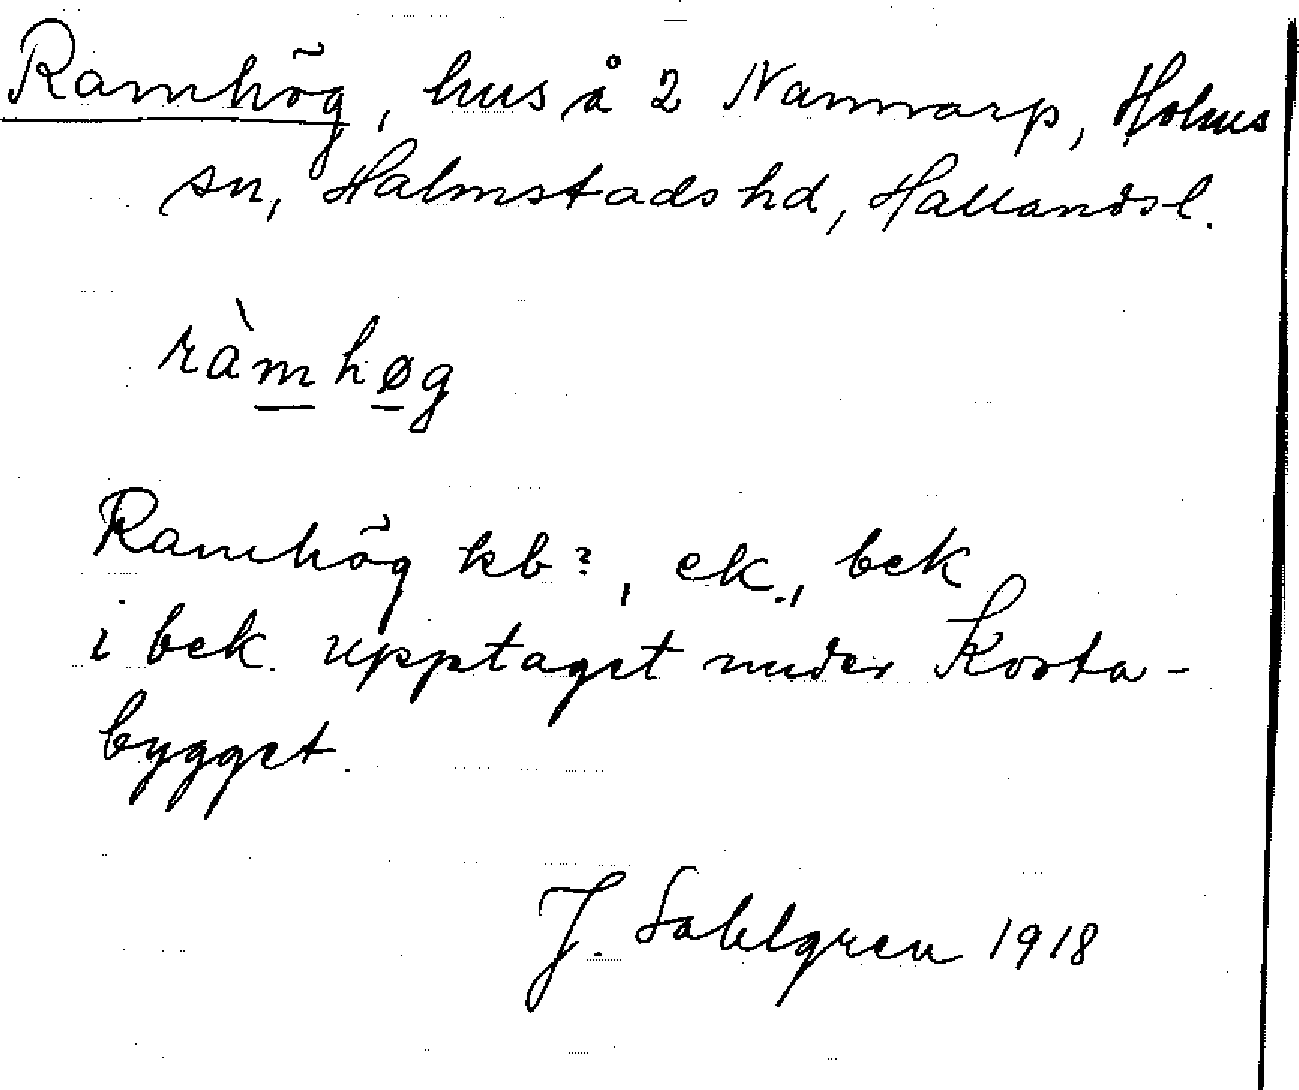 Ramhög, hus å 2 Nannarp, Holms
sn, Halmstads hd, Hallands l.
ràmhøg
Ramhög kb?, ek., bek
i bek. upptaget under Korta-
bygget.
J. Sahlgren 1918